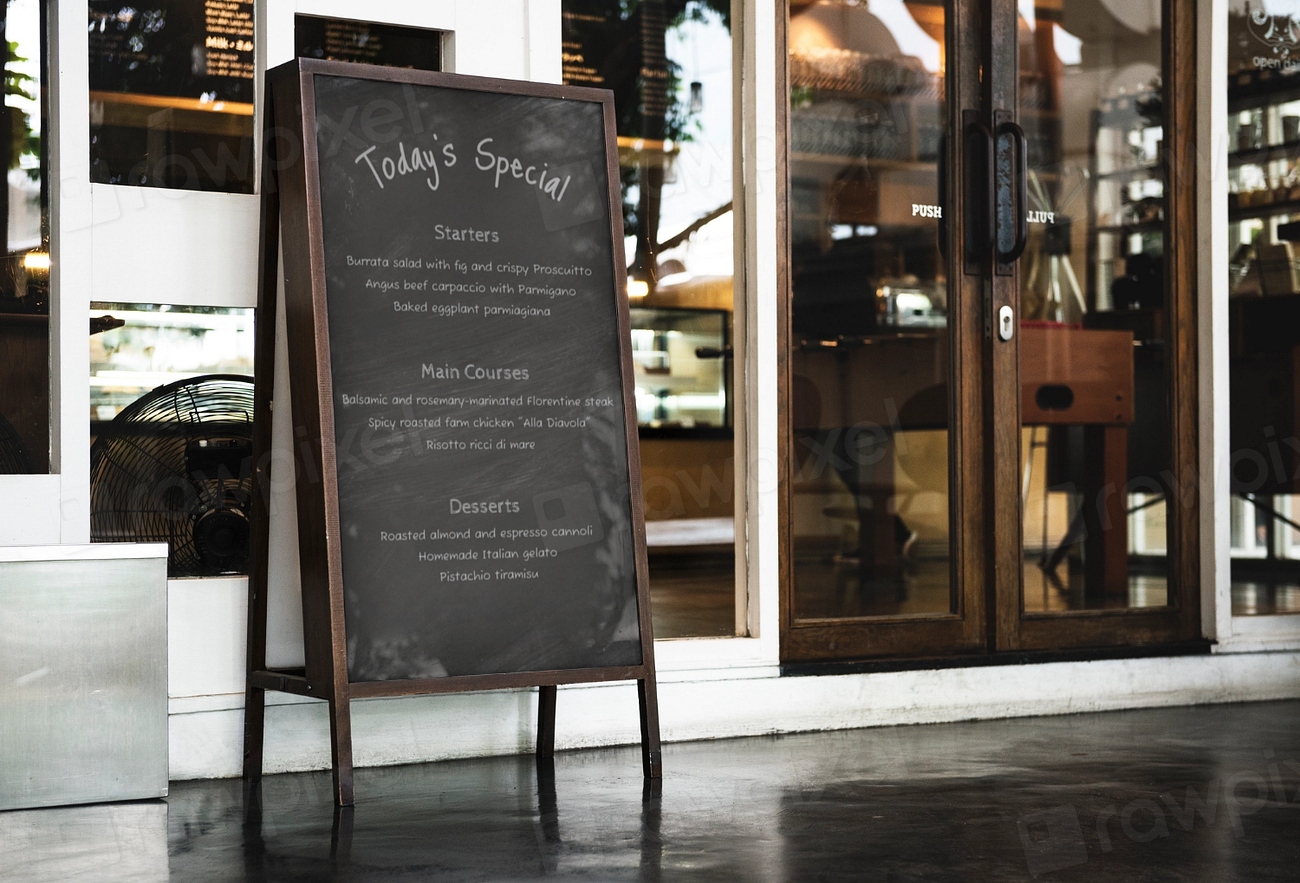 Today's Special
Starters
Burrata salad with fig and crispy Proscuitto
Angus beef carpaccio with Parmigano
Baked eggplant parmiagiana
Main Courses
Balsamic and rosemary-marinated Florentine steak
Spicy roasted farm chicken "Alla Diavola"
Risotto ricci di mare
Desserts
Roasted almond and espresso cannoli
Homemade Italian gelato
Pistachio tiramisu
PUSH
PULL
open da
rawpixel